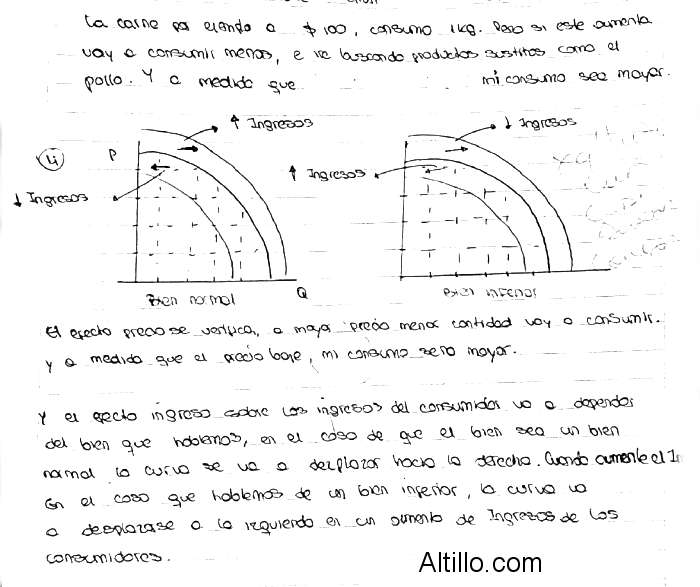 La carne es cuando a $100, consumo 1kg. Pero si este aumenta
voy a consumir menos, e ire buscando productos sustitos como el
pollo. Y a medida que mi consumo sea mayor.
↑ Ingresos
↓ Ingresos
4)
P
↑ Ingresos
↓ Ingresos
Bien normal
Q
Bien inferior
El efecto precio se verifica, a mayor precio menor cantidad voy a consumir.
y a medida que el precio baje, mi consumo sera mayor.
Y el efecto ingreso sobre los ingresos del consumidor va a depender
del bien que hablemos, en el caso de que el bien sea un bien
normal la curva se va a desplazar hacia la derecha. Cuando aumente el In
En el caso que hablemos de un bien inferior, la curva va
a desplazase a la izquierda en un aumento de Ingresos de los
consumidores.
Altillo.com